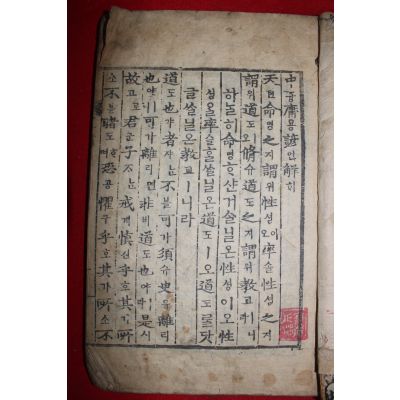 中듕庸용諺언解ᄒᆡ
天텬命명之지謂위性셩이오率솔性셩之지
謂위道도ㅣ오修슈道도之지謂위敎교ㅣ니라
하ᄂᆞᆯ히命명ᄒᆞ샨거슬닐온性셩이오性
셩을率솔ᄒᆞᆯ쓸닐온道도ㅣ오道도ᄅᆞᆯ닷
글쓸닐온敎교ㅣ니라
道도也야者쟈ᄂᆞᆫ不블可가須슈臾유離리
也야ㅣ니可가離리면非비道도也야ㅣ라是시
故고로君군子ᄌᆞᄂᆞᆫ戒계愼신乎호其기所
소不블睹도ᄒᆞ며恐공懼구乎호其기所소不